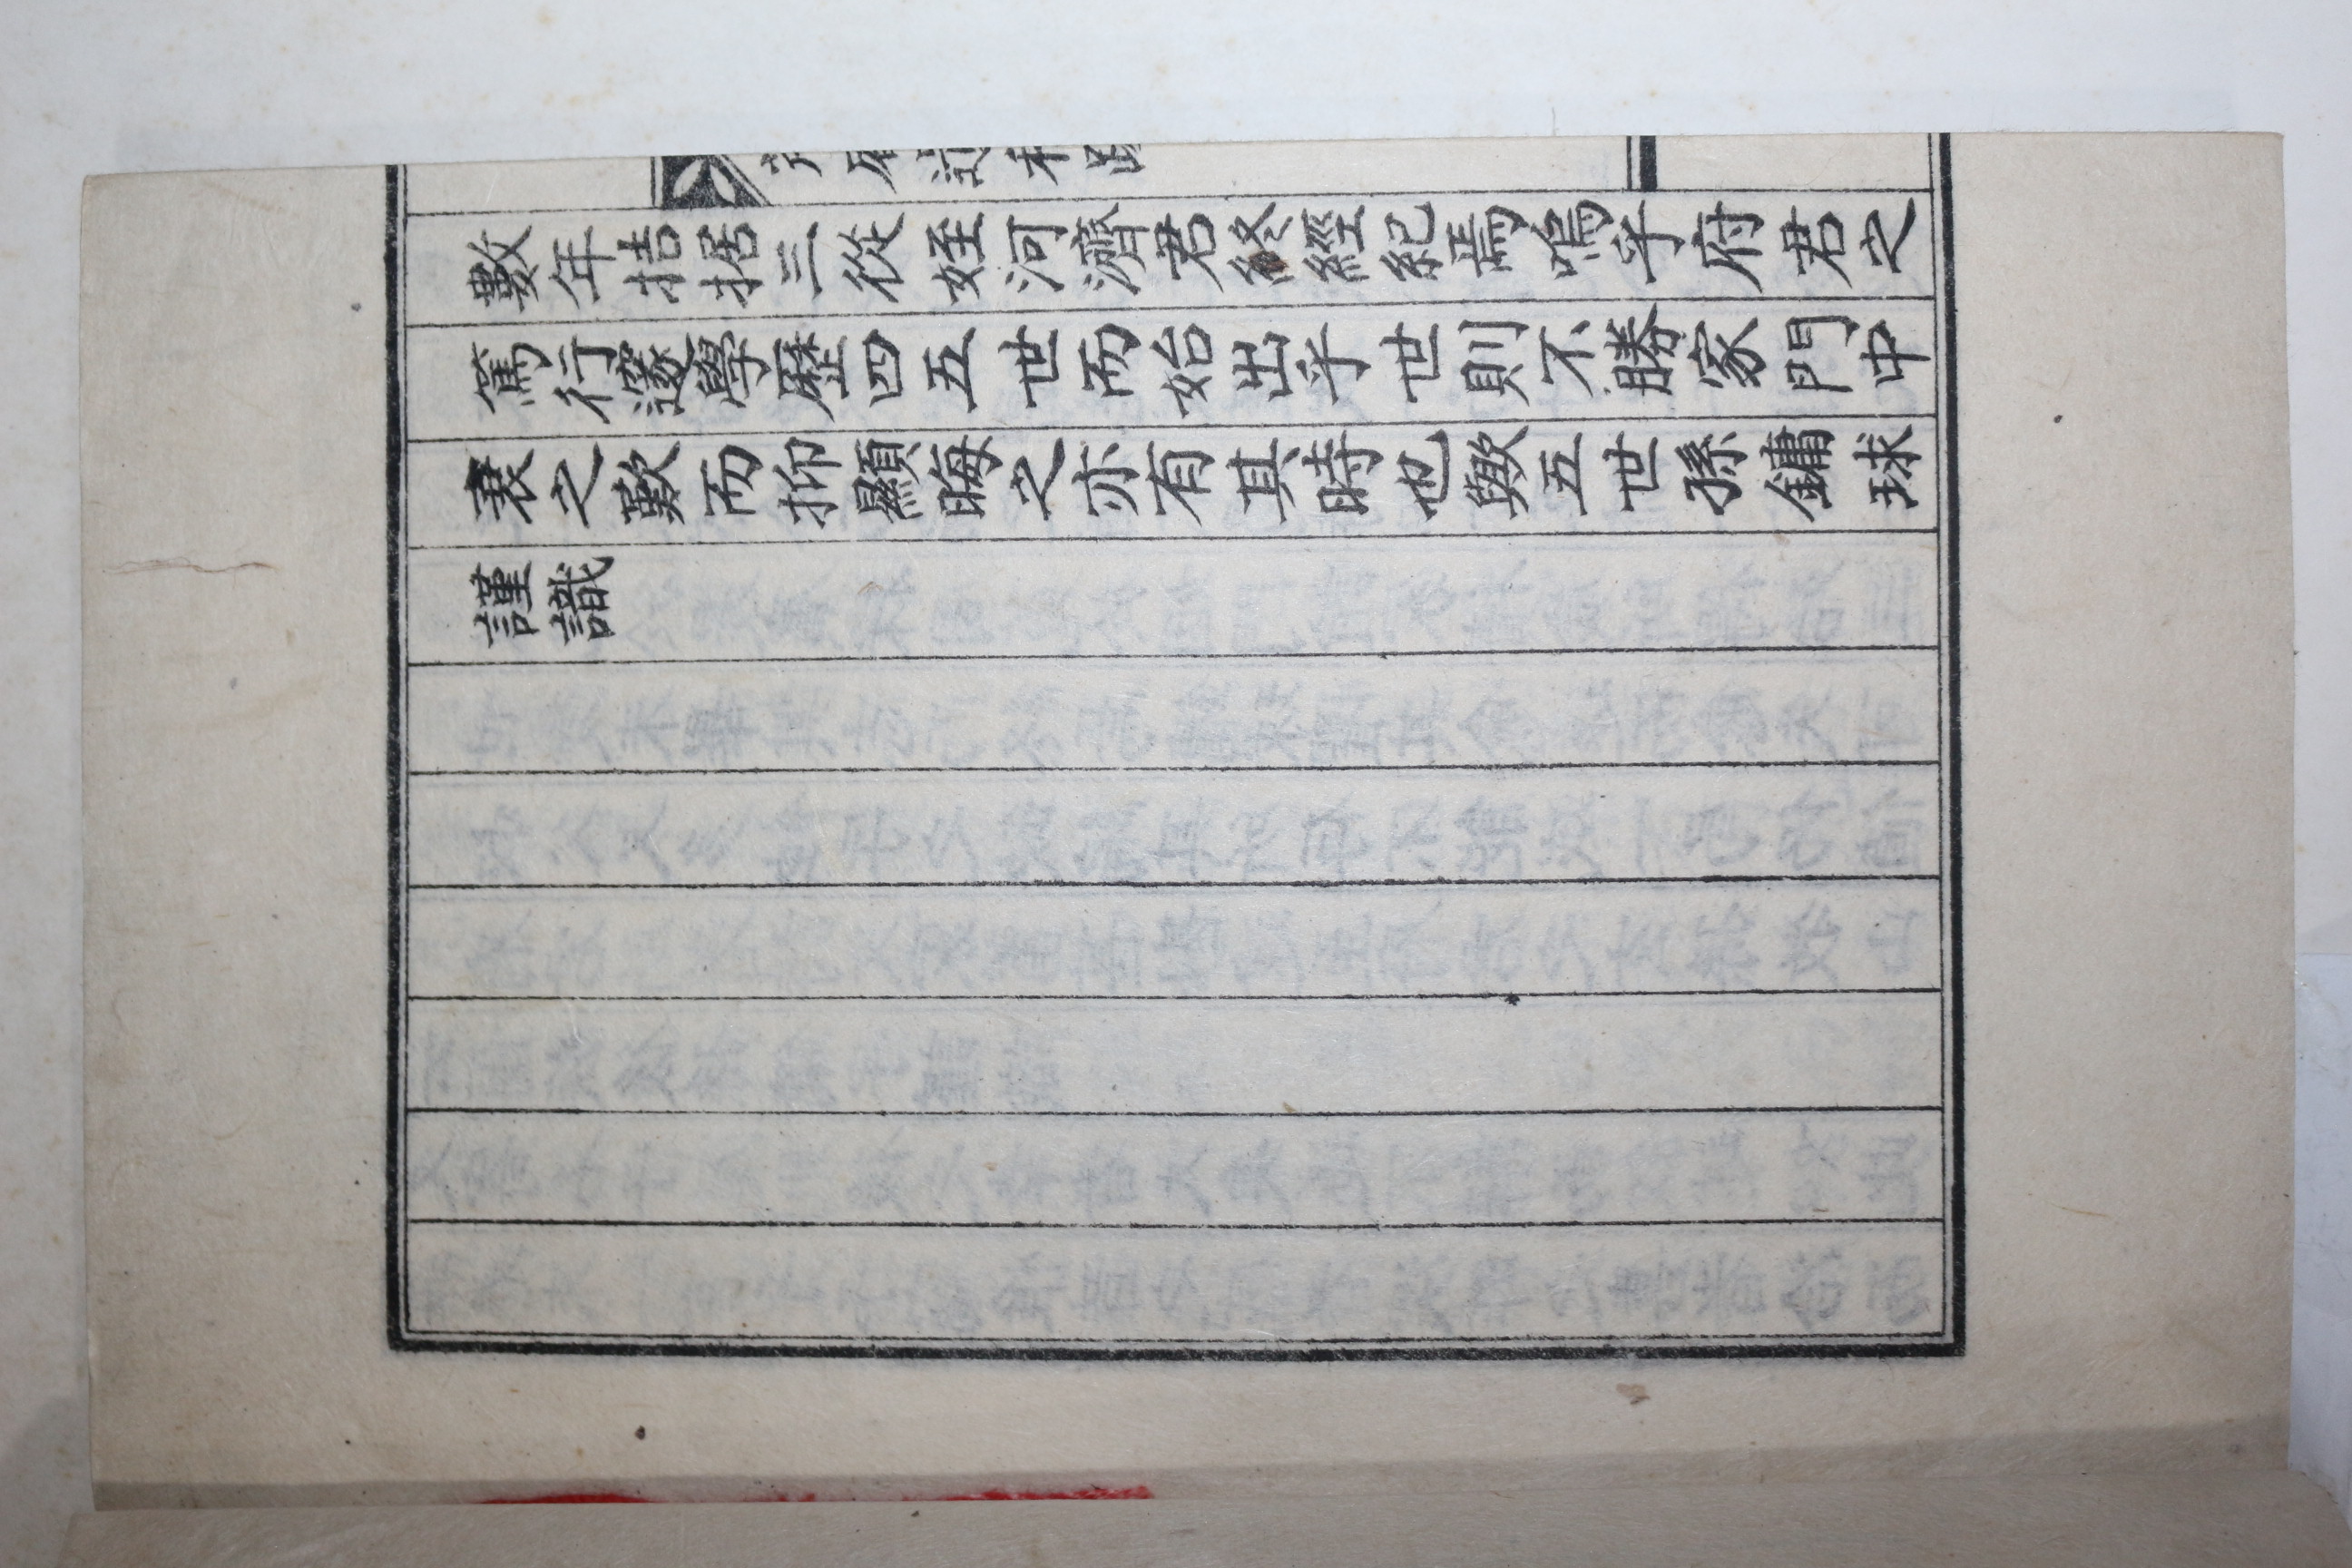 數年拮据三從姪河濟君終經紀焉嗚乎府君之
篤行邃學歷四五世而始出乎世則不勝家門中
衰之歎而抑顯晦之亦有其時也歟五世孫鏞球
謹識